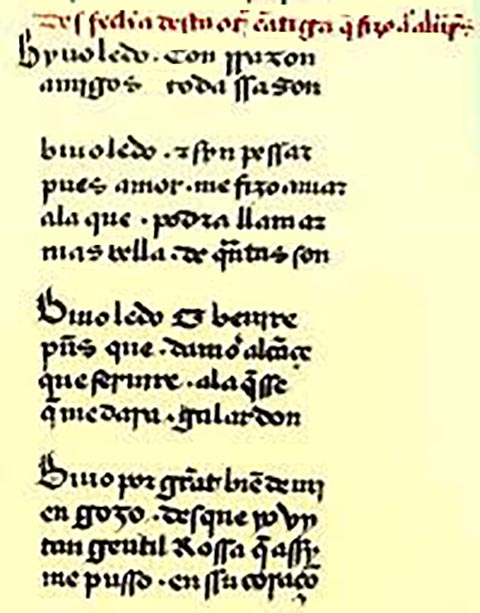 Desfecha desta ot̃ cãtiga q̃ fizo
Byuo ledo . con rrazon
amigos toda ssason
biuo ledo . ⁊ ssyn pessar
pues amor . me fizo amar
ala que . podra llamar
mas bella . de q̃ntas son
Biuo ledo ⁊ beuire
pũs que . damor alcãçe
que seruire . ala q̃ sse
q̃ me dara . gualardon
Biuo por grãt biẽ de mi
en gozo . desque yo vy
tan gentil Rossa q̃ assy
me pusso . en ssu coraçõ